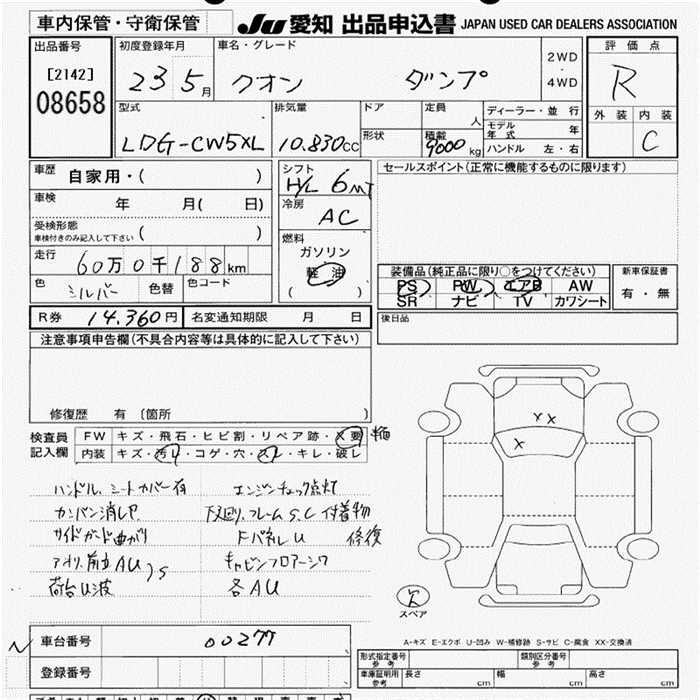 車内保管・守衛保管
JU 愛知 出品申込書 JAPAN USED CAR DEALERS ASSOCIATION
出品番号
[2142]
08658
初度登録年月
23 5月
車名・グレード
クオン ダンプ
2WD
・
4WD
評価点
R
外装 内装
C
型式
LDG-CW5XL
排気量
10.830cc
ドア
形状
定員
人
積載
9000kg
ディーラー・並行
モデル年式 年
ハンドル 左・右
車歴 自家用・( )
車検 年 月( 日)
受検形態
車検付きのみ記入して下さい ( )
走行 60万0千188km
色 シルバー 色替 色コード
シフト
H/L 6MT
冷房
AC
燃料
ガソリン
軽油
( )
セールスポイント(正常に機能するものに限ります)
装備品(純正品に限り○をつけてください)
PS PW エアB AW
SR ナビ TV カワシート
新車保証書
有・無
R券 14.360円 名変通知期限 月 日
後日品
注意事項申告欄(不具合内容等は具体的に記入して下さい)
修復歴 有 〔箇所 〕
検査員記入欄
FW キズ・飛石・ヒビ割・リペア跡・X要
内装 キズ・汚れ・コゲ・穴・スレ・キレ・破レ
ハンドル、シートカバー有 エンジンチェック点灯
カンバン消しや 下廻り、フレームS.C 付着物
サイドガード曲がり FパネルU 修復
アオリ、前立AU)S キャビンフロアーシワ
荷台U波 各AU
X X
X
スペア
A-キズ E-エクボ U-凹み W-補修跡 S-サビ C-腐食 XX-交換済
車台番号 00277
登録番号
形式指定番号 参考
類別区分番号 参考
車庫証明用 参考 長さ cm 幅 cm 高さ cm